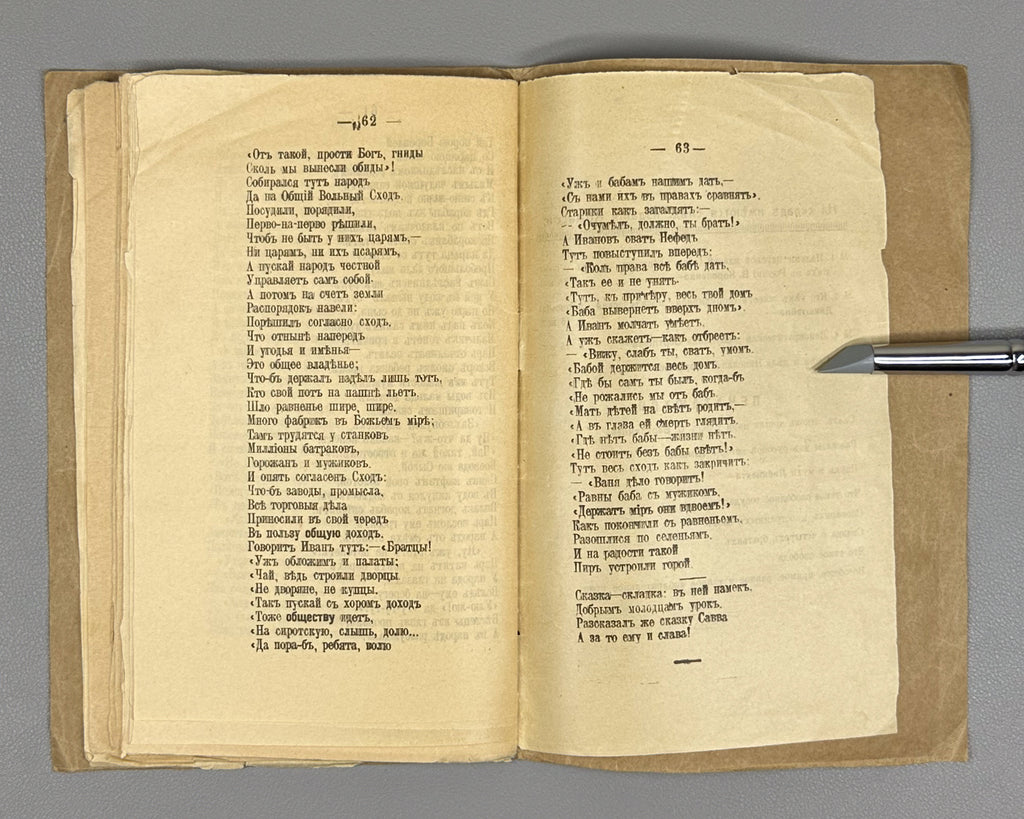 — 62 —
«Отъ такой, прости Богъ, гниды
Сколь мы вынесли обиды»!
Собирался тутъ народъ
Да на Общій Вольный Сходъ.
Посудили, порядили,
Перво-на-перво рѣшили,
Чтобъ не быть у нихъ царямъ,—
Ни царямъ, ни ихъ псарямъ,
А пускай народъ честной
Управляетъ самъ собой.
А потомъ на счетъ земли
Распорядокъ навели:
Порѣшилъ согласно сходъ,
Что отнынѣ напередъ
И угодья и имѣнья—
Это общее владѣнье;
Что-бъ держалъ надѣлъ лишь тотъ,
Кто свой потъ на пашнѣ льетъ.
Шло равненье шире, шире,
Много фабрикъ въ Божьемъ мірѣ;
Тамъ трудятся у станковъ
Милліоны батраковъ,
Горожанъ и мужиковъ.
И опять согласенъ Сходъ:
Что-бъ заводы, промысла,
Всѣ торговыя дѣла
Приносили въ свой чередъ
Въ пользу общую доходъ.
Говоритъ Иванъ тутъ:—«Братцы!
«Ужъ обложимъ и палаты;
«Чай, вѣдь строили дворцы
«Не дворяне, не купцы.
«Такъ пускай съ хоромъ доходъ
«Тоже обществу идетъ,
«На сиротскую, слышь, долю...
«Да пора-бъ, ребята, волю
— 63 —
«Ужъ и бабамъ нашимъ дать,—
«Съ нами ихъ въ правахъ сравнять».
Старики какъ загалдятъ:—
— «Очумѣлъ, должно, ты братъ!»
А Ивановъ сватъ Нефедъ
Тутъ повыступилъ впередъ:
— «Коль права всѣ бабѣ дать,
«Такъ ее и не унять.
«Тутъ, къ примѣру, весь твой домъ
«Баба вывернетъ вверхъ дномъ».
А Иванъ молчать умѣетъ,
А ужъ скажетъ—какъ отбреетъ:
— «Вижу, слабъ ты, сватъ, умомъ.
«Бабой держится весь домъ.
«Гдѣ бы самъ ты былъ, когда-бъ
«Не рожались мы отъ бабъ.
«Мать дѣтей на свѣтъ родитъ,—
«А въ глаза ей смерть глядитъ.
«Гдѣ нѣтъ бабы—жизни нѣтъ.
«Не стоитъ безъ бабы свѣтъ!»
Тутъ весь сходъ какъ закричитъ:
— «Ваня дѣло говоритъ!
«Равны баба съ мужикомъ,
«Держатъ міръ они вдвоемъ!»
Какъ покончили съ равненьемъ,
Разошлися по селеньямъ,
И на радости такой
Пиръ устроили горой.
Сказка—складка: въ ней намекъ,
Добрымъ молодцамъ урокъ.
Разсказалъ же сказку Савва
А за то ему и слава!